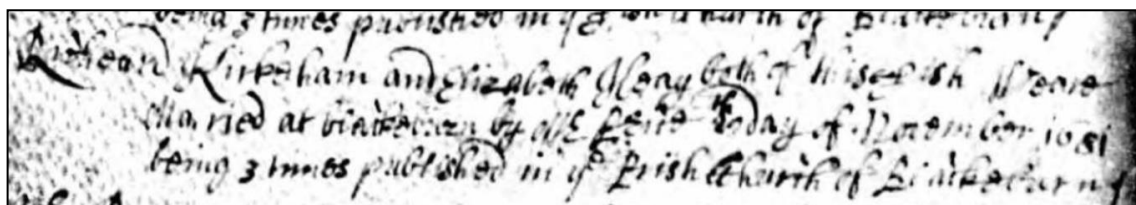 being 3 times published in ye Church of Blackeburn
Richard Kirkeham and Elizabeth both of this Pish Weare
Maried at blackeburn by Mr day of November 1681
being 3 times published in ye Prish Church of Blackeburn